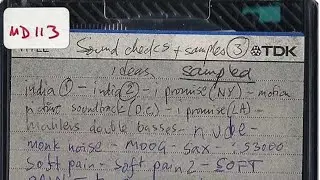 MD 113
TITLE Sound checks + samples ③ TDK
ideas, sampled
india ① - india ② - i promise (NY) - motion
picture soundtrack (D.C.) - i promise (LA) -
mahlers double basses - nude -
monk noise - MOOG - sax - S3000
soft pain - soft pain 2 - SOFT